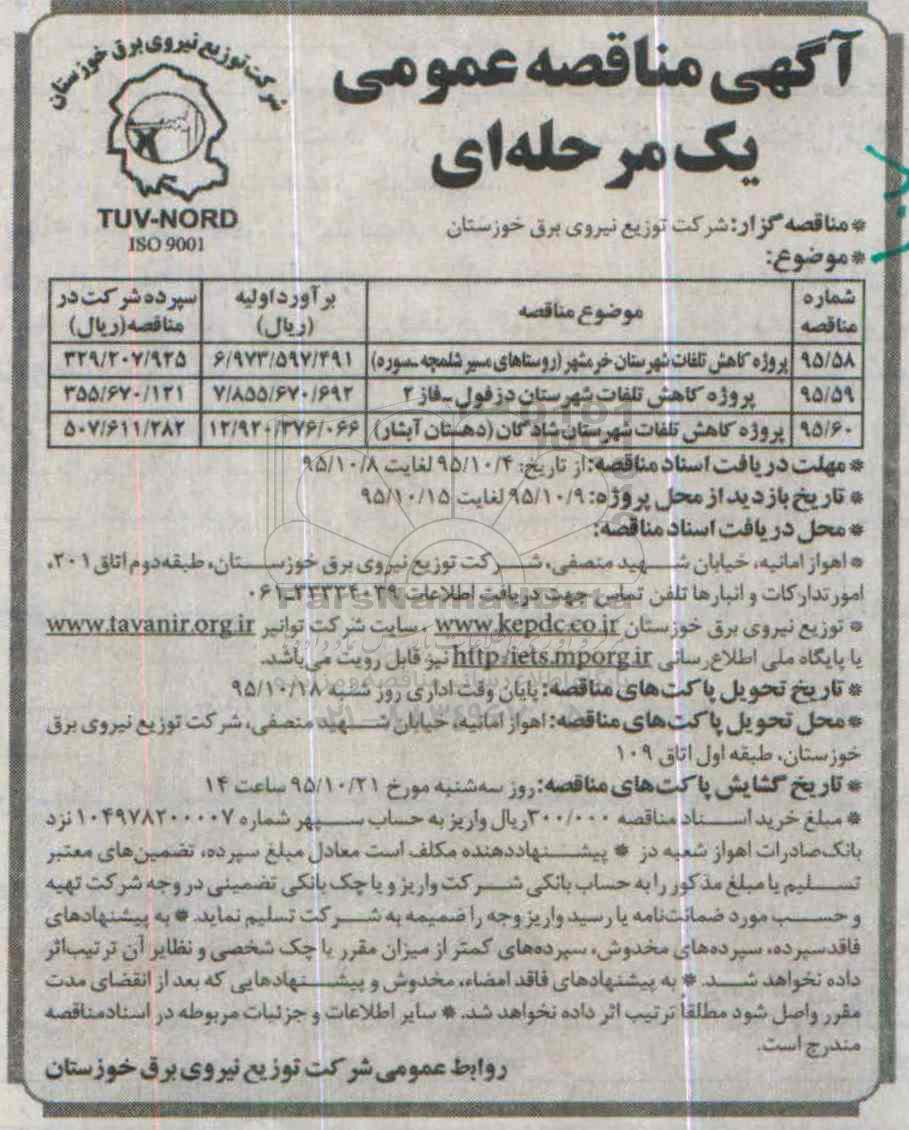 شرکت توزیع نیروی برق خوزستان
TUV-NORD
ISO 9001
آگهی مناقصه عمومی
یک مرحله‌ای
* مناقصه گزار: شرکت توزیع نیروی برق خوزستان
* موضوع:
شماره مناقصه | موضوع مناقصه | برآورد اولیه (ریال) | سپرده شرکت در مناقصه (ریال)
۹۵/۵۸ | پروژه کاهش تلفات شهرستان خرمشهر (روستاهای مسیر شلمچه ـ سوره) | ۶/۹۷۳/۵۹۷/۴۹۱ | ۳۲۹/۲۰۷/۹۲۵
۹۵/۵۹ | پروژه کاهش تلفات شهرستان دزفول ـ فاز ۲ | ۷/۸۵۵/۶۷۰/۶۹۲ | ۳۵۵/۶۷۰/۱۲۱
۹۵/۶۰ | پروژه کاهش تلفات شهرستان شادگان (دهستان آبشار) | ۱۲/۹۲۰/۳۷۶/۰۶۶ | ۵۰۷/۶۱۱/۲۸۲
* مهلت دریافت اسناد مناقصه: از تاریخ: ۹۵/۱۰/۴ لغایت ۹۵/۱۰/۸
* تاریخ بازدید از محل پروژه: ۹۵/۱۰/۹ لغایت ۹۵/۱۰/۱۵
* محل دریافت اسناد مناقصه:
* اهواز امانیه، خیابان شهید منصفی، شرکت توزیع نیروی برق خوزستان، طبقه دوم اتاق ۲۰۱،
امور تدارکات و انبارها تلفن تماس جهت دریافت اطلاعات ۳۳۳۳۴۰۳۹-۰۶۱
* توزیع نیروی برق خوزستان www.kepdc.co.ir ، سایت شرکت توانیر www.tavanir.org.ir
یا پایگاه ملی اطلاع‌رسانی http/iets.mporg.ir نیز قابل رویت می‌باشد.
* تاریخ تحویل پاکت‌های مناقصه: پایان وقت اداری روز شنبه ۹۵/۱۰/۱۸
* محل تحویل پاکت‌های مناقصه: اهواز امانیه، خیابان شهید منصفی، شرکت توزیع نیروی برق
خوزستان، طبقه اول اتاق ۱۰۹
* تاریخ گشایش پاکت‌های مناقصه: روز سه‌شنبه مورخ ۹۵/۱۰/۲۱ ساعت ۱۴
* مبلغ خرید اسناد مناقصه ۳۰۰/۰۰۰ ریال واریز به حساب سپهر شماره ۱۰۴۹۷۸۲۰۰۰۰۷ نزد
بانک صادرات اهواز شعبه دز * پیشنهاددهنده مکلف است معادل مبلغ سپرده، تضمین‌های معتبر
تسلیم یا مبلغ مذکور را به حساب بانکی شرکت واریز و یا چک بانکی تضمینی در وجه شرکت تهیه
و حسب مورد ضمانت‌نامه یا رسید واریز وجه را ضمیمه به شرکت تسلیم نماید. * به پیشنهادهای
فاقد سپرده، سپرده‌های مخدوش، سپرده‌های کمتر از میزان مقرر یا چک شخصی و نظایر آن ترتیب اثر
داده نخواهد شد. * به پیشنهادهای فاقد امضاء، مخدوش و پیشنهادهایی که بعد از انقضای مدت
مقرر واصل شود مطلقا ترتیب اثر داده نخواهد شد. * سایر اطلاعات و جزئیات مربوطه در اسناد مناقصه
مندرج است.
روابط عمومی شرکت توزیع نیروی برق خوزستان
ParsNamadData